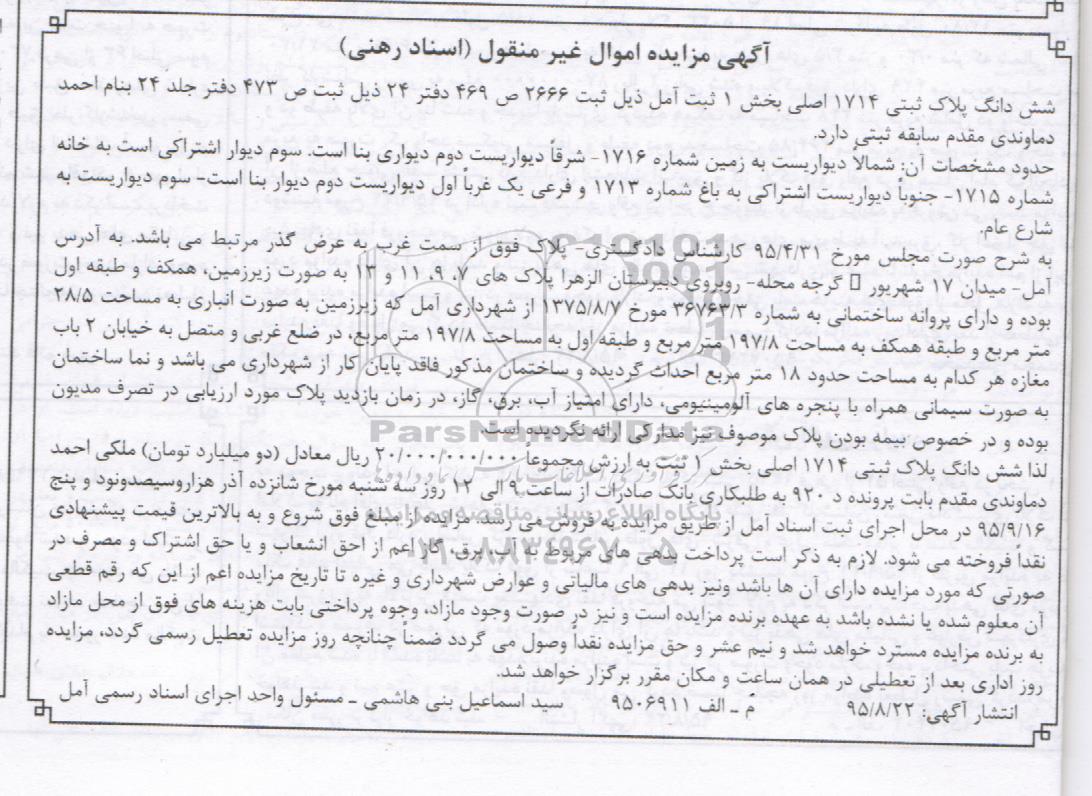 آگهی مزایده اموال غیر منقول (اسناد رهنی)
شش دانگ پلاک ثبتی ۱۷۱۴ اصلی بخش ۱ ثبت آمل ذیل ثبت ۲۶۶۶ ص ۴۶۹ دفتر ۲۴ ذیل ثبت ص ۴۷۳ دفتر جلد ۲۴ بنام احمد
دماوندی مقدم سابقه ثبتی دارد.
حدود مشخصات آن: شمالاً دیواریست به زمین شماره ۱۷۱۶- شرقاً دیواریست دوم دیواری بنا است. سوم دیوار اشتراکی است به خانه
شماره ۱۷۱۵- جنوباً دیواریست اشتراکی به باغ شماره ۱۷۱۳ و فرعی یک غرباً اول دیواریست دوم دیوار بنا است- سوم دیواریست به
شارع عام.
به شرح صورت مجلس مورخ ۹۵/۴/۳۱ کارشناس دادگستری- پلاک فوق از سمت غرب به عرض گذر مرتبط می باشد. به آدرس
آمل- میدان ۱۷ شهریور گرجه محله- روبروی دبیرستان الزهرا پلاک های ۷، ۹، ۱۱ و ۱۳ به صورت زیرزمین، همکف و طبقه اول
بوده و دارای پروانه ساختمانی به شماره ۳۶۷۶۳/۳ مورخ ۱۳۷۵/۸/۷ از شهرداری آمل که زیرزمین به صورت انباری به مساحت ۲۸/۵
متر مربع و طبقه همکف به مساحت ۱۹۷/۸ متر مربع و طبقه اول به مساحت ۱۹۷/۸ متر مربع، در ضلع غربی و متصل به خیابان ۲ باب
مغازه هر کدام به مساحت حدود ۱۸ متر مربع احداث گردیده و ساختمان مذکور فاقد پایان کار از شهرداری می باشد و نما ساختمان
به صورت سیمانی همراه با پنجره های آلومینیومی، دارای امتیاز آب، برق، گاز، در زمان بازدید پلاک مورد ارزیابی در تصرف مدیون
بوده و در خصوص بیمه بودن پلاک موصوف نیز مدارکی ارائه نگردیده است.
ParsNamadData
لذا شش دانگ پلاک ثبتی ۱۷۱۴ اصلی بخش ۱ ثبت به ارزش مجموعا ۲۰/۰۰۰/۰۰۰/۰۰۰ ریال معادل (دو میلیارد تومان) ملکی احمد
دماوندی مقدم بابت پرونده د ۹۲۰ به طلبکاری بانک صادرات از ساعت ۹ الی ۱۲ روز سه شنبه مورخ شانزده آذر هزاروسیصدونود و پنج
پایگاه اطلاع رسانی مناقصه و مزایده
۹۵/۹/۱۶ در محل اجرای ثبت اسناد آمل از طریق مزایده به فروش می رسد. مزایده از مبلغ فوق شروع و به بالاترین قیمت پیشنهادی
نقداً فروخته می شود. لازم به ذکر است پرداخت بدهی های مربوط به آب، برق، گاز اعم از حق انشعاب و یا حق اشتراک و مصرف در
۰۲۱-۸۸۳۴۹۶۷۰-۵
صورتی که مورد مزایده دارای آن ها باشد ونیز بدهی های مالیاتی و عوارض شهرداری و غیره تا تاریخ مزایده اعم از این که رقم قطعی
آن معلوم شده یا نشده باشد به عهده برنده مزایده است و نیز در صورت وجود مازاد، وجوه پرداختی بابت هزینه های فوق از محل مازاد
به برنده مزایده مسترد خواهد شد و نیم عشر و حق مزایده نقداً وصول می گردد ضمناً چنانچه روز مزایده تعطیل رسمی گردد، مزایده
روز اداری بعد از تعطیلی در همان ساعت و مکان مقرر برگزار خواهد شد.
انتشار آگهی: ۹۵/۸/۲۲ م ـ الف ۹۵۰۶۹۱۱ سید اسماعیل بنی هاشمی ـ مسئول واحد اجرای اسناد رسمی آمل